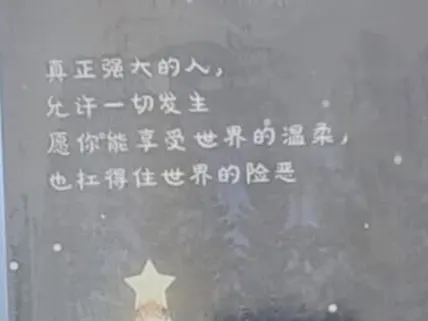 真正强大的人，
允许一切发生
愿你能享受世界的温柔，
也扛得住世界的险恶